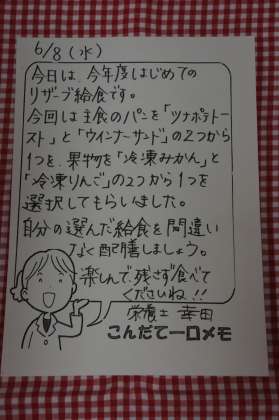 6/8(水)
今日は、今年度はじめての
リザーブ給食です。
今回は主食のパンを「ツナポテトー
スト」と「ウインナーサンド」の2つから
1つを、果物を「冷凍みかん」と
「冷凍りんご」の2つから1つを
選択してもらいました。
自分の選んだ給食を間違い
なく配膳しましょう。
楽しんで、残さず食べて
くださいね!!
栄養士 幸田
こんだて一口メモ